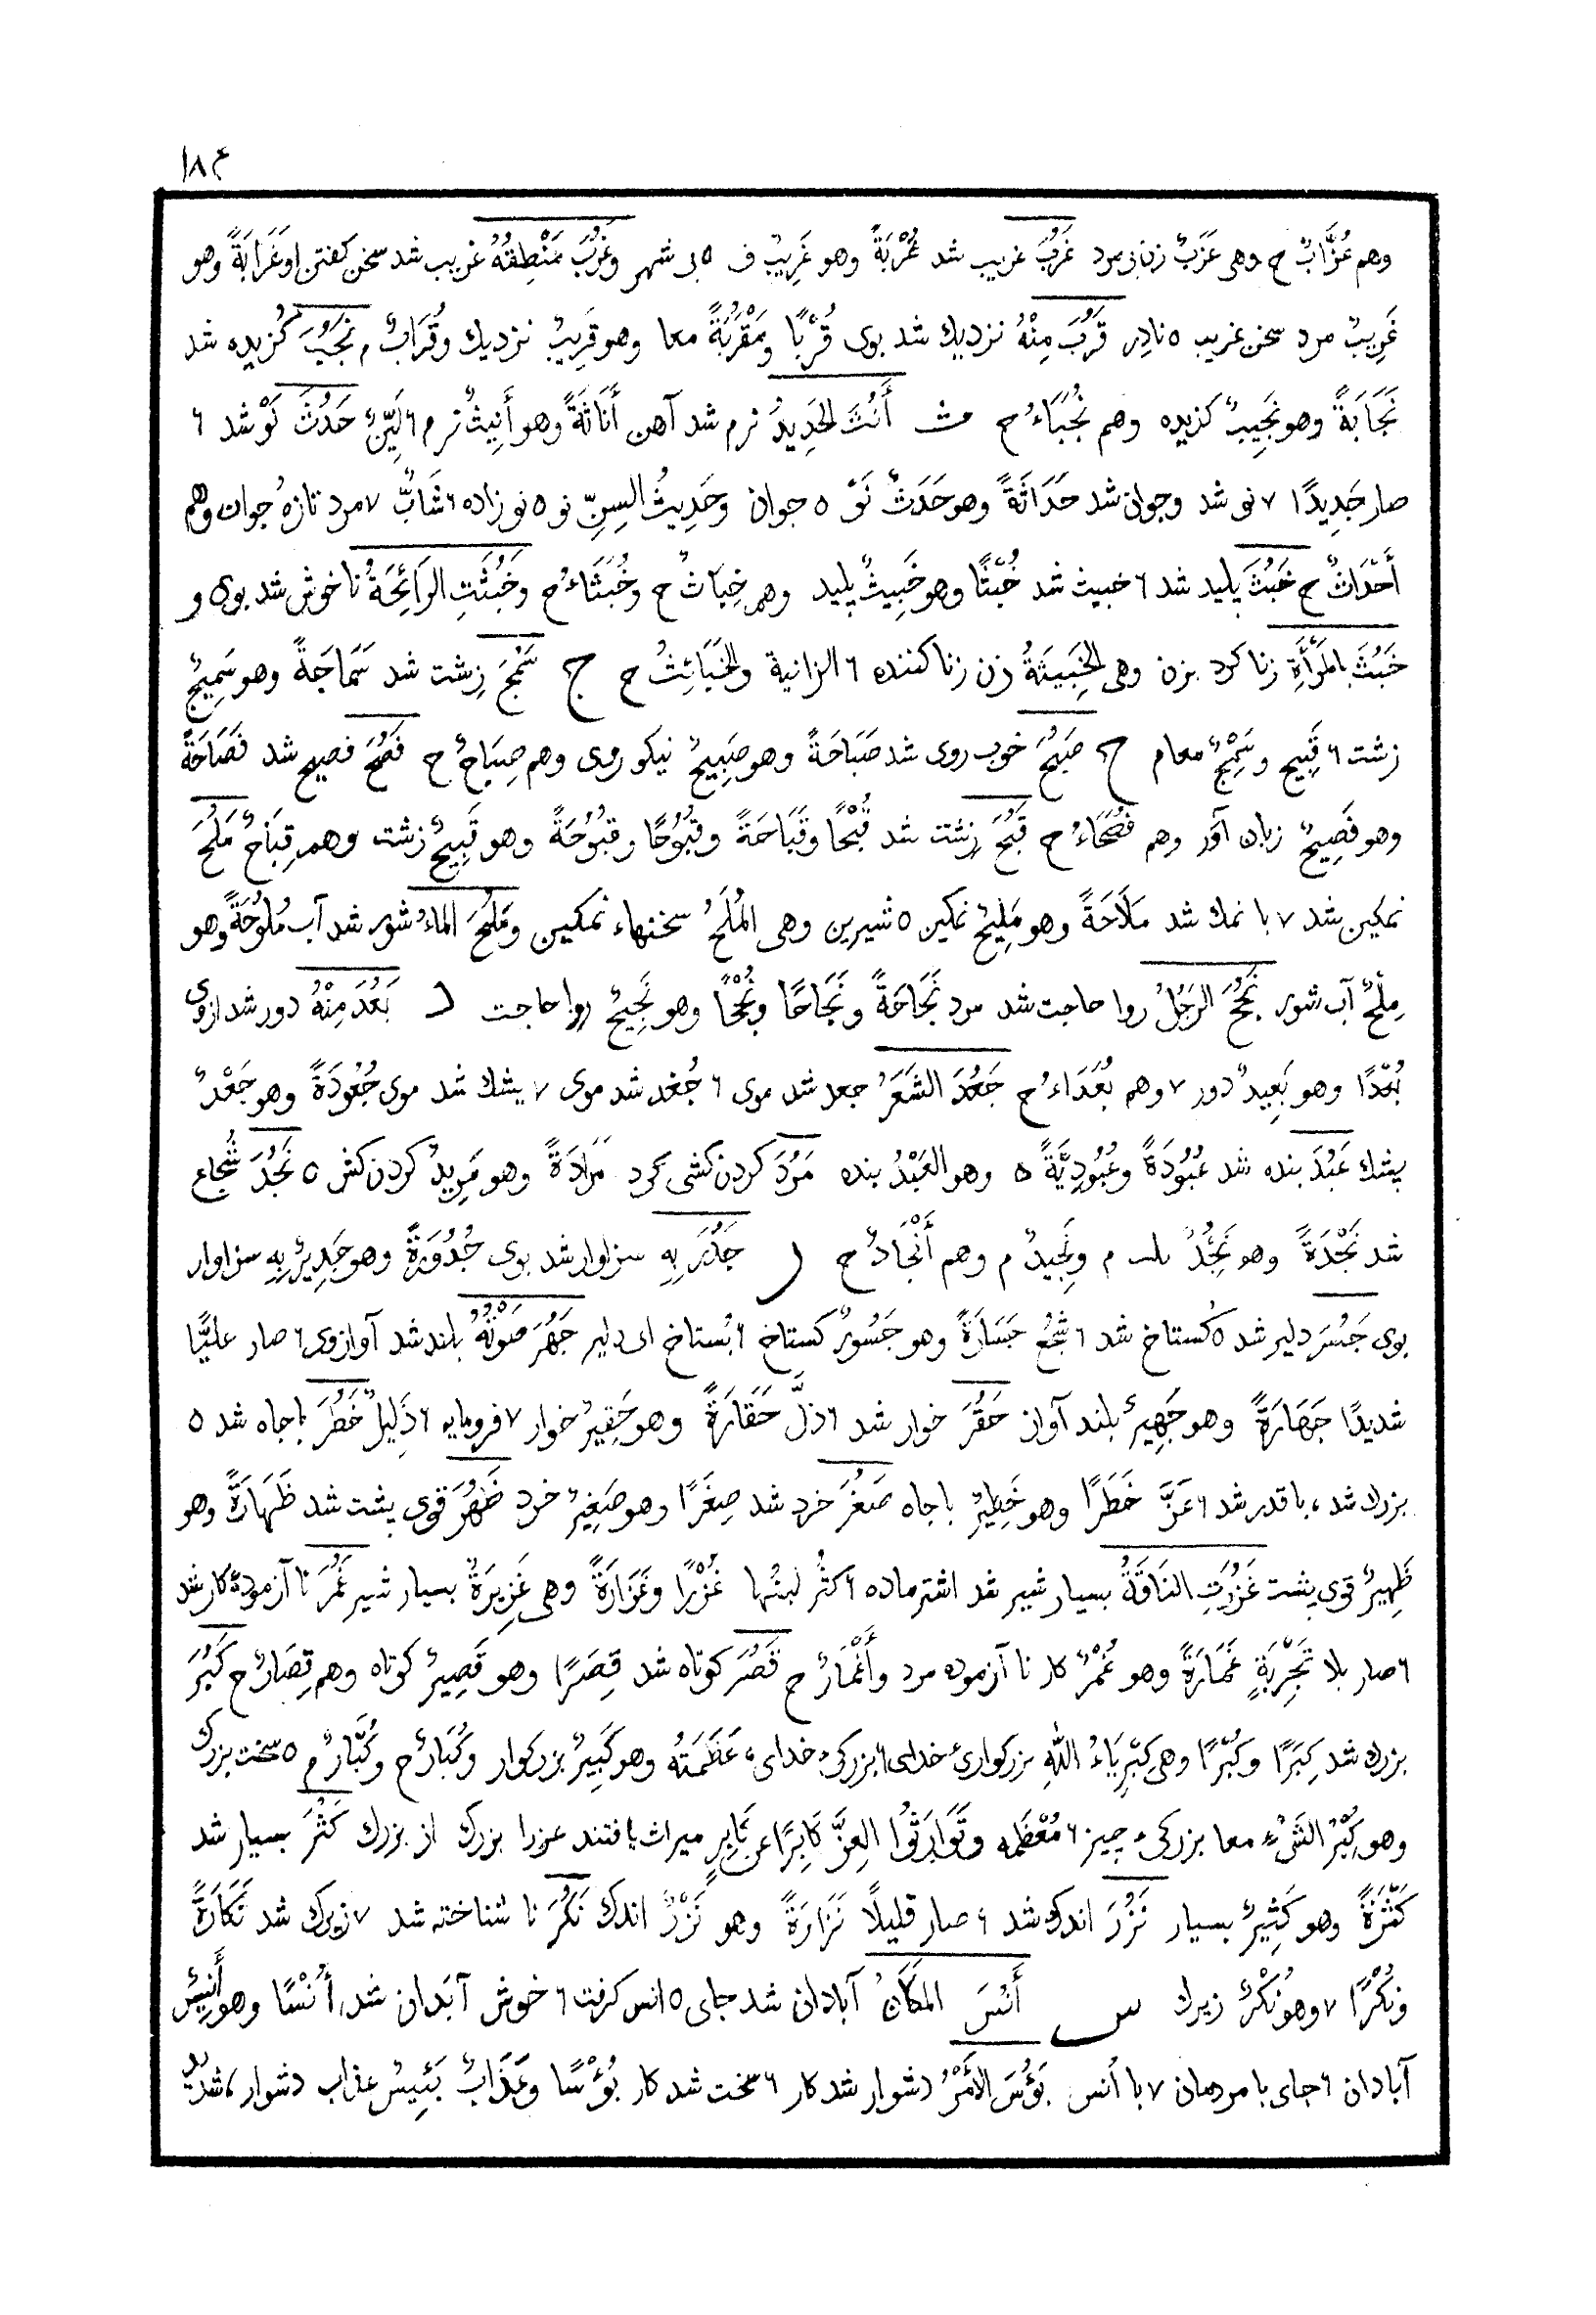 ١٨٤
وهم عُزَّابٌ ح وهى عَزَبٌ زن بى مرد غَرُبَ غريب شد غُرْبَةً وهو غَرِيبٌ ف ٥ بى شهر وغَرُبَ مَنْطِقُهُ غريب شد سخن كفتن او غَرَابَةً وهو
غَرِيبٌ مرد سخن غريب ٥ نادِر قَرُبَ مِنْهُ نزديك شد بوى قُرْبًا ومَقْرُبَةً معا وهو قَرِيبٌ نزديك وقُرَابٌ م نَجُبَ كُزيده شد
نَجَابَةً وهو نَجِيبٌ كزيده وهم نُجُبَاءُ ح ث أَنُثَ الحَدِيدُ نرم شد آهن أَنَاثَةً وهو أَنِيثٌ نرم ٦ لَيِّنٌ حَدُثَ نَوْ شد ٦
صار جَدِيدًا ٧ نو شد وجوان شد حَدَاثَةً وهو حَدَثٌ نَوْ ٥ جوان وحَدِيثُ السِنِّ نو ٥ نو زاده ٦ شَابٌّ ٧ مرد تازهُ جوان وهم
أَحْدَاثٌ ح خَبُثَ پليد شد ٦ خبيث شد خُبْثًا وهو خَبِيثٌ پليد وهم خِبَاثٌ ح وخُبَثَاءُ ح وخَبُثَتِ الرَائِحَةُ ناخوش شد بوى و
خَبُثَ بِالمَرْأَةِ زنا كرد بزن وهى الخَبِيثَةُ زن زنا كننده ٦ الزانية والخَبَائِثُ ح ج سَمُجَ زِشت شد سَمَاجَةً وهو سَمِيجٌ
زشت ٦ قَبِيح وسَمْجٌ معا م ح صَبُحَ خوب روى شد صَبَاحَةً وهو صَبِيحٌ نيكو روى وهم صِبَاحٌ ح فَصُحَ فصيح شد فَصَاحَةً
وهو فَصِيحٌ زبان آور وهم فُصَحَاءُ ح قَبُحَ زِشت شد قُبْحًا وقَبَاحَةً وقُبُوْحًا وقُبُوْحَةً وهو قَبِيحٌ زشت وهم قِبَاحٌ مَلُحَ
نمكين شد ٧ با نمك شد مَلَاحَةً وهو مَلِيحٌ نمكين ٥ شيرين وهى المُلَحُ سخنهاء نمكين ومَلُحَ الماءُ شور شد آب مُلُوْحَةً وهو
مِلْحٌ آب شور نَجُحَ الرَجُلُ روا حاجت شد مرد نَجَاحَةً ونَجَاحًا ونُجْحًا وهو نَجِيحٌ روا حاجت د بَعُدَ مِنْهُ دور شد ازوى
بُعْدًا وهو بَعِيدٌ دور ٧ وهم بُعَدَاءُ ح جَعُدَ الشَعَرُ جعد شد موى ٦ جُغد شد موى ٧ پشك شد موى جُعُودَةً وهو جَعْدٌ
پشك عَبُدَ بنده شد عُبُوْدَةً وعُبُودِيَّةً ٥ وهو العَبْدُ بنده مَرُدَ كردن كشى كرد مَرَادَةً وهو مَرِيدٌ كردن كش ٥ نَجُدَ شُجاع
شد نَجْدَةً وهو نَجُدٌ م ونَجِيدٌ م وهم أَنْجَادٌ ح ر جَدُرَ بِهِ سزاوار شد بوى جُدُوْرَةً وهو جَدِيرٌ بِهِ سزاوار
بوى جَسُرَ دلير شد ٥ كُستاخ شد ٦ شَجُعَ جَسَارَةً وهو جَسُورٌ كستاخ ٦ بُستاخ اى دلير جَهُرَ صَوْتُهُ بلند شد آواز وى ٦ صار عليًّا
شديدًا جَهَارَةً وهو جَهِيرٌ بلند آواز حَقُرَ خوار شد ٦ ذلَّ حَقَارَةً وهو حَقِيرٌ خوار ٧ فرومايه ٦ ذَلِيلٌ خَطُرَ باجاه شد ٥
بزرك شد، باقدر شد ٦ عَزَّ خَطَرًا وهو خَطِيرٌ باجاه صَغُرَ خرد شد صِغَرًا وهو صَغِيرٌ خرد ظَهُرَ قوى پشت شد ظَهَارَةً وهو
ظَهِيرٌ قوى پشت غَزُرَتِ النَاقَةُ بسيار شير شد اشتر ماده ٦ كثُر لبنُها غُزْرًا وغَزَارَةً وهى غَزِيرَةٌ بسيار شير غَمُرَ نا آزمودهٔ كار شد
٦ صار بلا تَجْرِبَةٍ غَمَارَةً وهو غُمْرٌ كار نا آزموده مرد وأَغْمَارٌ ح قَصُرَ كوتاه شد قِصَرًا وهو قَصِيرٌ كوتاه وهم قِصَارٌ ح كَبُرَ
بزرك شد كِبَرًا وكُبْرًا وهى كِبْرِيَاءُ اللّٰهِ بزركوارئ خداى ٦ بزركىء خداى، عَظَمَتُهُ وهو كَبِيرٌ بزركوار وكُبَارٌ ح وكُبَّارٌ م ٥ سخت بزرك
وهو كِبْرُ الشَىْءِ معا بزركىء چيز ٦ مُعْظَمه وتَوَارَثُوا العِزَّ كَابِرًا عن كَابِرٍ ميراث يافتند عزرا بزرك از بزرك كَثُرَ بسيار شد
كَثْرَةً وهو كَثِيرٌ بسيار نَزُرَ اندك شد ٦ صار قليلًا نَزَارَةً وهو نَزْرٌ اندك نَكُرَ نا شناخته شد ٧ زيرك شد نَكَارَةً
ونُكْرًا ٧ وهو نُكْرٌ زيرك س أَنُسَ المَكَانُ آبادان شد جاى ٥ انس كرفت ٦ خوش آبَدان شد، أُنْسًا وهو أَنِيسٌ
آبادان ٦ جاى با مردمان ٧ با اُنس بَؤُسَ الأَمْرُ دشوار شد كار ٦ سخت شد كار بُؤْسًا وعَذَابٌ بَئِيسٌ عذاب دشوار، شديدٌ